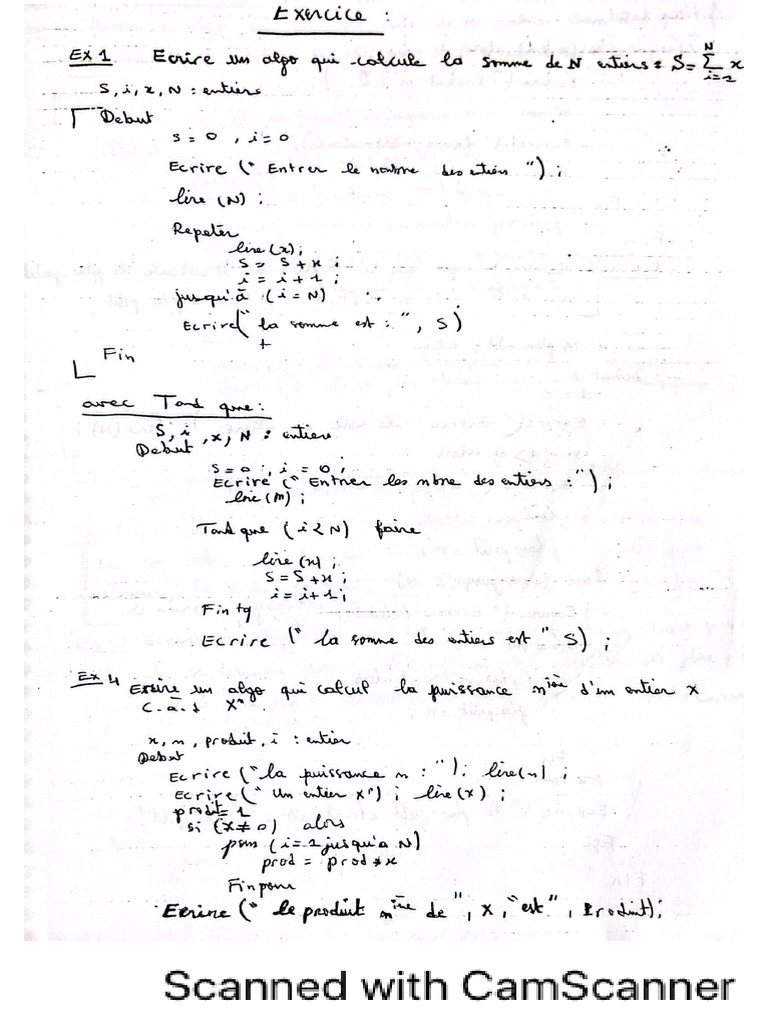 Exercice :
EX 1 Ecrire un algo qui calcule la somme de N entiers : S = ∑ x
N
i=1
S, i, x, N : entiers
Debut
s = 0 , i = 0
Ecrire (" Entrer le nombre des entiers ") ;
lire (N) ;
Repeter
lire (x) ;
S = S + x ;
i = i + 1 ;
jusqu'à (i = N)
Ecrire(" la somme est : ", S)
Fin
avec Tand que :
S, i, x, N : entiers
Debut
s = 0 ; i = 0 ;
Ecrire (" Entrer les nbre des entiers : ") ;
lire (m) ;
Tand que (i < N) faire
lire (x) ;
S = S + x ;
i = i + 1 ;
Fin tq
Ecrire (" la somme des entiers est " S) ;
Ex 4 Ecrire un algo qui calcul la puissance nième d'un entier x
c.à.d Xⁿ
x, n, produit, i : entier
Debut
Ecrire ("la puissance n : "); lire(n) ;
Ecrire (" Un entier X") ; lire (x) ;
produit = 1
si (x ≠ 0) alors
pour (i = 1 jusqu'a N)
prod = prod * x
Fin pour
Ecrire (" le produit nième de ", X, "est", Produit);
Scanned with CamScanner